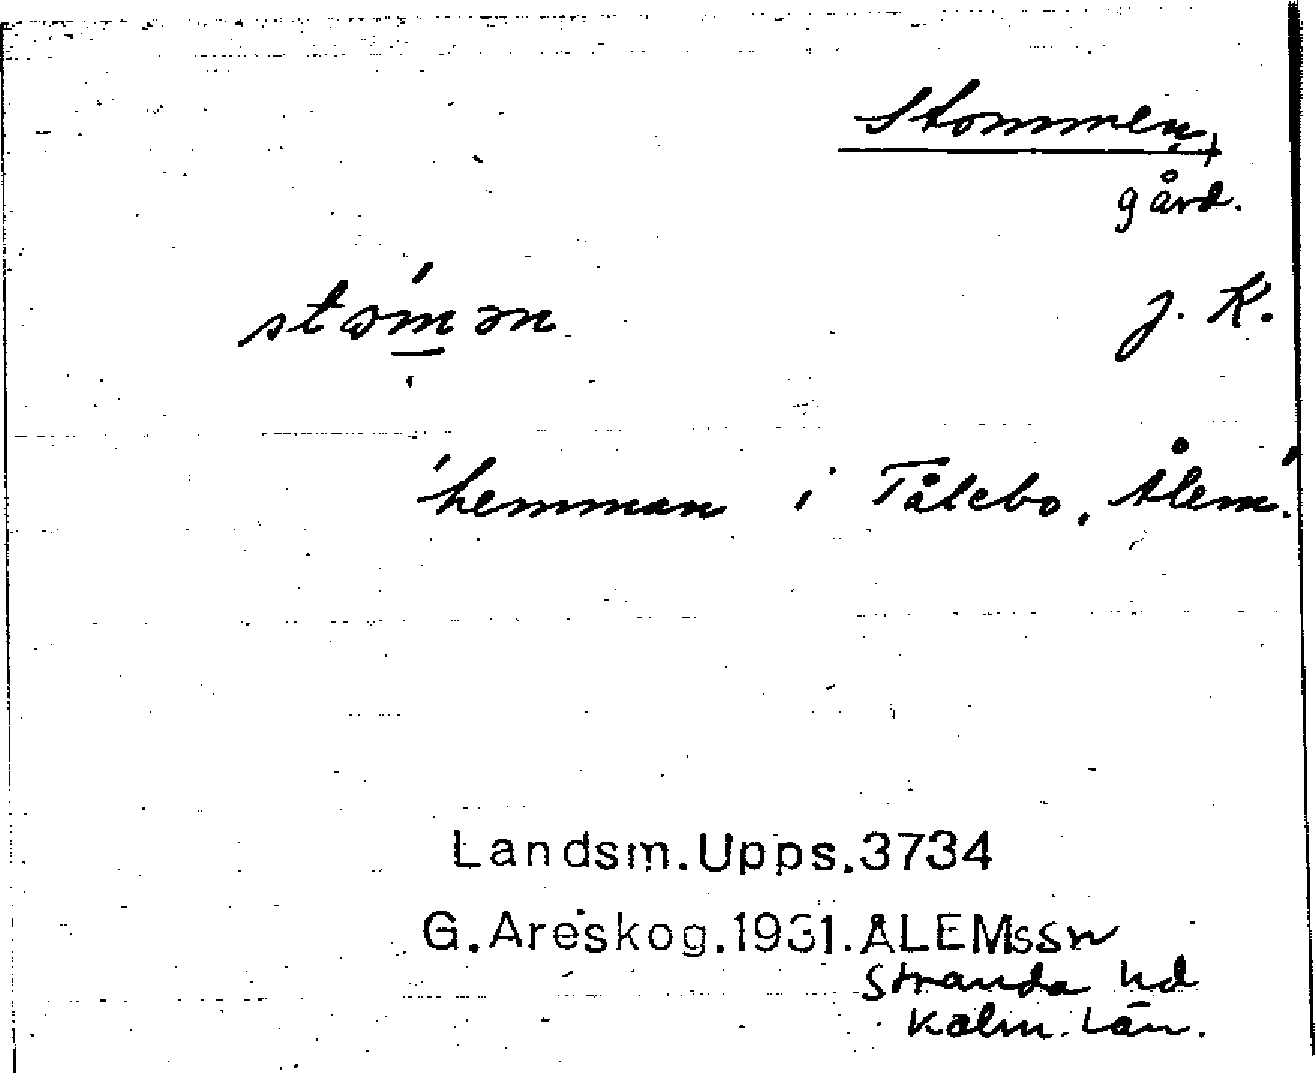 Stommen,
gård.
stəmən J. K.
'hemman i Tålebo, Ålem.'
Landsm.Upps.3734
G.Areskog.1931.ÅLEMssn
Stranda hd
Kalm. Län.